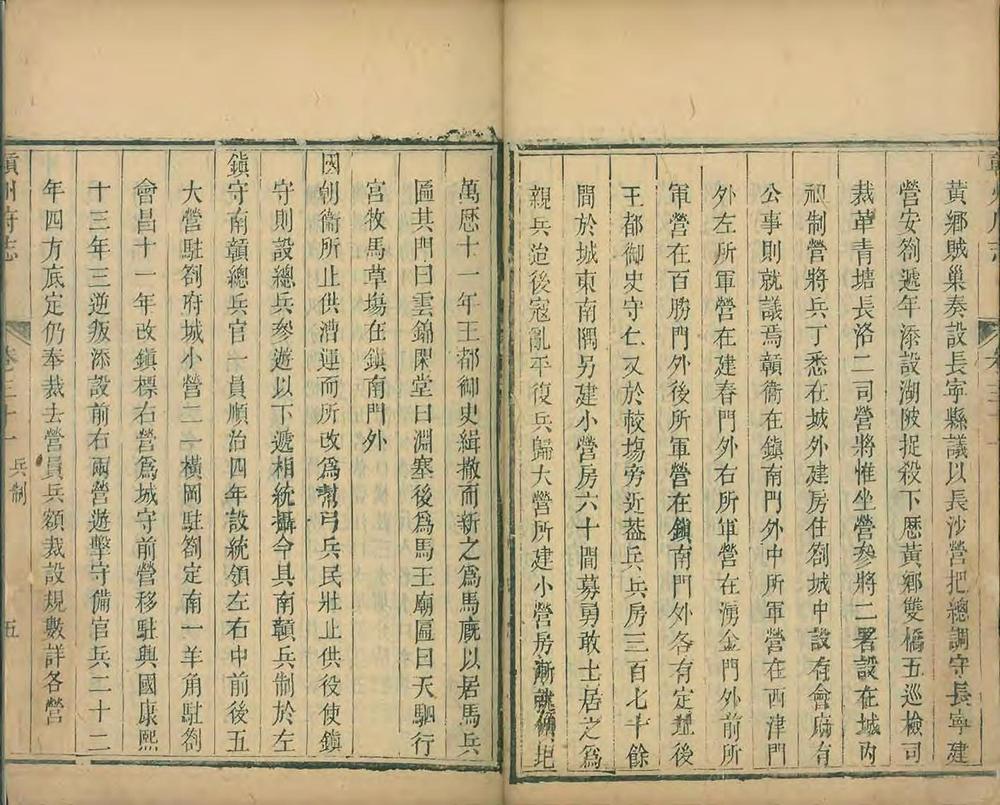 黃鄉賊巢奏設長寧縣議以長沙營把總調守長寧建
營安劄遞年添設湖陂捉殺下厯黃鄉雙橋五巡檢司
裁革青塘長洛二司營將惟坐營參將二署設在城内
祖制營將兵丁悉在城外建房住劄城中設有會府有
公事則就議焉贑衛在鎮南門外中所軍營在西津門
外左所軍營在建春門外右所軍營在湧金門外前所
軍營在百勝門外後所軍營在鎮南門外各有定壃後
王都御史守仁又於較塲旁近葢兵兵房三百七十餘
間於城東南隅另建小營房六十間募勇敢士居之為
親兵迨後寇亂平復兵歸大營所建小營房漸就頹圯
萬厯十一年王都御史緝撤而新之為馬廐以居馬兵
匾其門曰雲錦閑堂曰淵塞後為馬王廟匾曰天駟行
宮牧馬草塲在鎮南門外
國朝衛所止供漕運而所改為幫弓兵民壯止供役使鎮
守則設總兵參遊以下遞相統攝今具南贑兵制於左
鎮守南贑總兵官一員順治四年設統領左右中前後五
大營駐劄府城小營二一橫岡駐劄定南一羊角駐劄
會昌十一年改鎮標右營為城守前營移駐興國康熙
十三年三逆叛添設前右兩營遊擊守備官兵二十二
年四方底定仍奉裁去營員兵額裁設規數詳各營
贛州府志
卷三十一
兵制
五